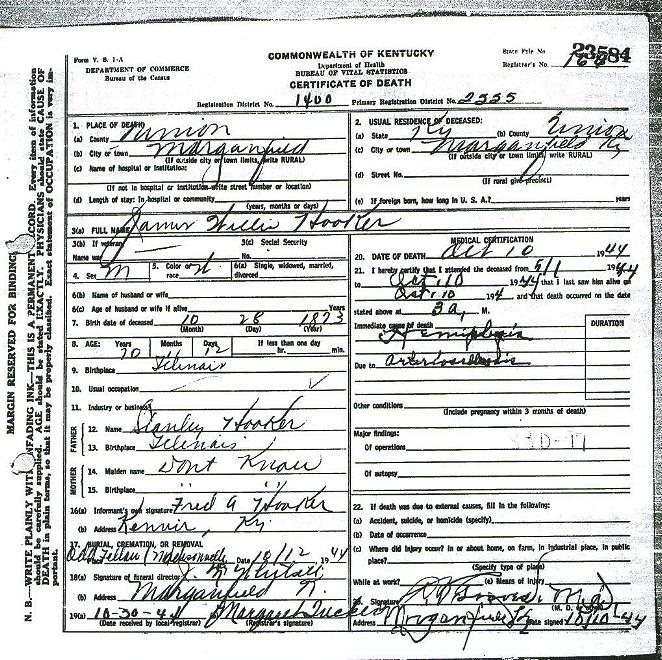 Form V. S. 1-A
DEPARTMENT OF COMMERCE
Bureau of the Census
COMMONWEALTH OF KENTUCKY
Department of Health
BUREAU OF VITAL STATISTICS
CERTIFICATE OF DEATH
State File No. 23584
Registrar's No.
Registration District No. 1400 Primary Registration District No. 2555
MARGIN RESERVED FOR BINDING
N. B.—WRITE PLAINLY WITH UNFADING INK—THIS IS A PERMANENT RECORD. Every item of information
should be carefully supplied. AGE should be stated EXACTLY. PHYSICIANS should state CAUSE OF
DEATH in plain terms, so that it may be properly classified. Exact statement of OCCUPATION is very im-
portant.
1. PLACE OF DEATH
(a) County Union
(b) City or town Morganfield
(If outside city or town limits, write RURAL)
(c) Name of hospital or institution:
(If not in hospital or institution write street number or location)
(d) Length of stay: In hospital or community
(years, months or days)
2. USUAL RESIDENCE OF DECEASED:
(a) State Ky (b) County Union
(c) City or town Morganfield Ky
(If outside city or town limits, write RURAL)
(d) Street No.
(If rural give precinct)
(e) If foreign born, how long in U. S. A.? years
3(a) FULL NAME James Willie Hooker
3(b) If veteran
Name war
3(c) Social Security
No.
4. Sex M
5. Color or race W
6(a) Single, widowed, married,
divorced
6(b) Name of husband or wife
6(c) Age of husband or wife if alive Years
7. Birth date of deceased 10 28 1873
(Month) (Day) (Year)
8. AGE: Years Months Days If less than one day
70 11 12 hr. min.
9. Birthplace Illinais
10. Usual occupation
11. Industry or business
FATHER
12. Name Stanley Hooker
13. Birthplace Illinais
MOTHER
14. Maiden name Dont Know
15. Birthplace " "
16(a) Informant's own signature Fred A Hooker
(b) Address Kenvir Ky.
17. BURIAL, CREMATION, OR REMOVAL
Odd Fellow Date 10/12 1944
18(a) Signature of funeral director
(b) Address Morganfield
19(a) 10-30-44 Margaret Tucker
(Date received by local registrar) (Registrar's signature)
MEDICAL CERTIFICATION
20. DATE OF DEATH Oct 10 1944
21. I hereby certify that I attended the deceased from 5/1 1944
to Oct. 10 1944 that I last saw him alive on
Oct. 10 194 and that death occurred on the date
stated above at 3 a. M.
Immediate cause of death DURATION
Hemiplegia
Due to arteriosclerosis
Other conditions
(Include pregnancy within 3 months of death)
Major findings:
Of operations
Of autopsy
22. If death was due to external causes, fill in the following:
(a) Accident, suicide, or homicide (specify)
(b) Date of occurrence
(c) Where did injury occur? In or about home, on farm, in industrial place, in public
place?
(Specify type of place)
While at work? (e) Means of injury
23. Signature M.D.
(M. D.
Address Morganfield Ky Date signed 10/10-44